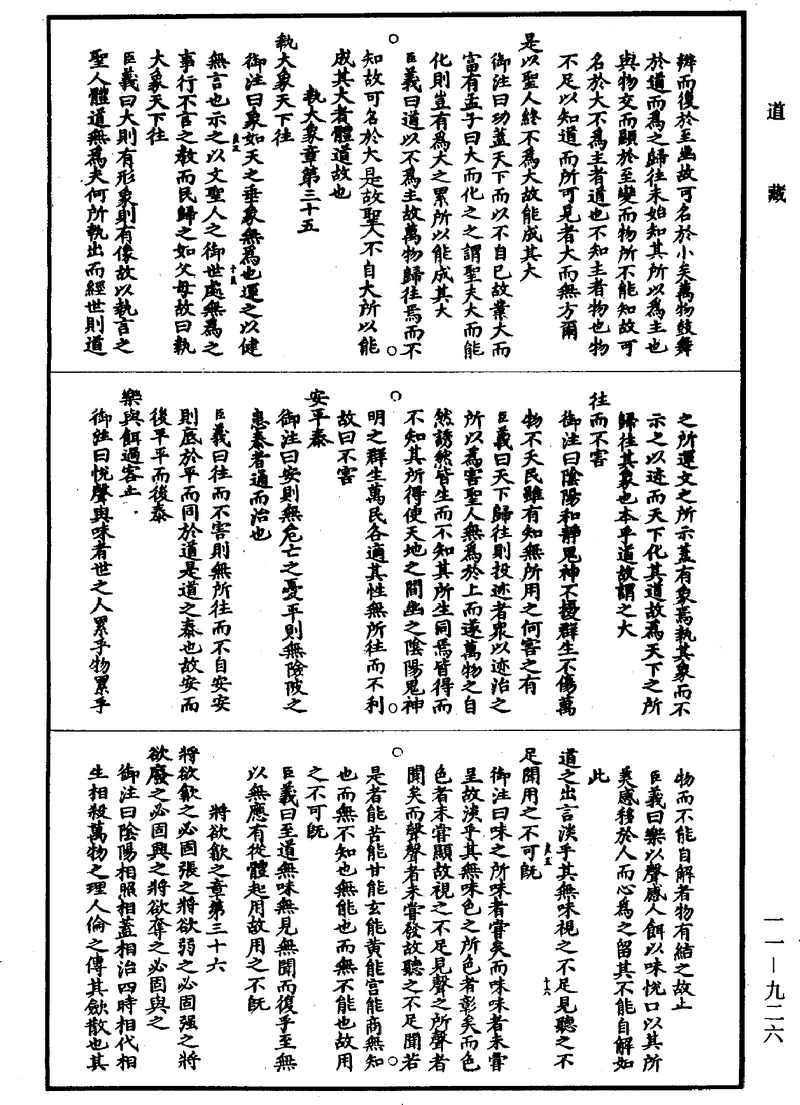 道藏
辨而復於至幽故可名於小矣萬物鼓舞
於道而為之歸往未始知其所以為主也
與物交而顯於至變而物所不能知故可
名於大不為主者道也不知主者物也物
不足以知道而所可見者大而無方爾
是以聖人終不為大故能成其大
御注曰功蓋天下而以不自已故業大而
富有孟子曰大而化之之謂聖夫大而能
化則豈有為大之累所以能成其大
臣義曰道以不為主故萬物歸往焉而不
知故可名於大是故聖人不自大所以能
成其大者體道故也
執大象章第三十五
執大象天下往
御注曰象如天之垂象無為也運之以健
無言也示之以文聖人之御世處無為之
事行不言之教而民歸之如父母故曰執
大象天下往
臣義曰大則有形象則有像故以執言之
聖人體道無為夫何所執出而經世則道
之所運文之所示蓋有象焉執其象而不
示之以迹而天下化其道故為天下之所
歸往其象也本乎道故謂之大
往而不害
御注曰陰陽和靜鬼神不擾群生不傷萬
物不夭民雖有知無所用之何害之有
臣義曰天下歸往則投迹者眾以迹治之
所以為害聖人無為於上而遂萬物之自
然誘然皆生而不知其所生同焉皆得而
不知其所得使天地之間幽之陰陽鬼神
明之群生萬民各適其性無所往而不利
故曰不害
安平泰
御注曰安則無危亡之憂平則無險陂之
患泰者通而治也
臣義曰往而不害則無所往而不自安安
則底於平而同於道是道之泰也故安而
後平平而後泰
樂與餌過客止
御注曰悅聲與味者世之人累乎物累乎
物而不能自解者物有結之故止
臣義曰樂以聲感人餌以味悅口以其所
美感移於人而心為之留其不能自解如
此
道之出言淡乎其無味視之不足見聽之不
足聞用之不可既
御注曰味之所味者嘗矣而味味者未嘗
呈故淡乎其無味色之所色者彰矣而色
色者未嘗顯故視之不足見聲之所聲者
聞矣而聲聲者未嘗發故聽之不足聞若
是者能苦能甘能玄能黃能宮能商無知
也而無不知也無能也而無不能也故用
之不可既
臣義曰至道無味無見無聞而復乎至無
以無應有從體起用故用之不既
將欲歙之章第三十六
將欲歙之必固張之將欲弱之必固强之將
欲廢之必固興之將欲奪之必固與之
御注曰陰陽相照相蓋相治四時相代相
生相殺萬物之理人倫之傳其歛散也其
一一—九二六